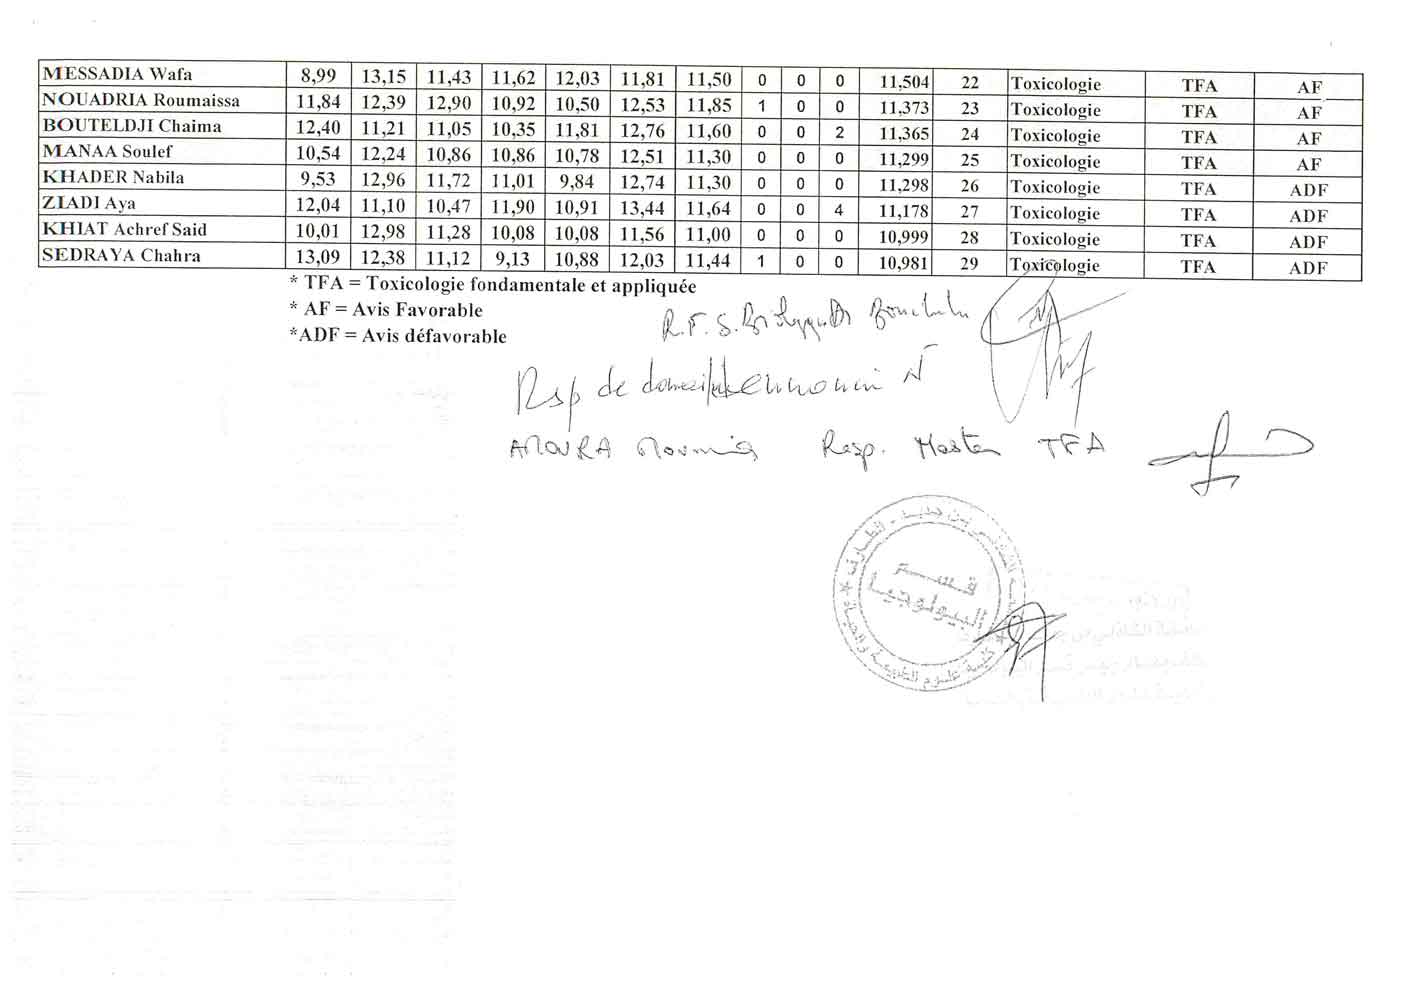 MESSADIA Wafa 8,99 13,15 11,43 11,62 12,03 11,81 11,50 0 0 0 11,504 22 Toxicologie TFA AF
NOUADRIA Roumaissa 11,84 12,39 12,90 10,92 10,50 12,53 11,85 1 0 0 11,373 23 Toxicologie TFA AF
BOUTELDJI Chaima 12,40 11,21 11,05 10,35 11,81 12,76 11,60 0 0 2 11,365 24 Toxicologie TFA AF
MANAA Soulef 10,54 12,24 10,86 10,86 10,78 12,51 11,30 0 0 0 11,299 25 Toxicologie TFA AF
KHADER Nabila 9,53 12,96 11,72 11,01 9,84 12,74 11,30 0 0 0 11,298 26 Toxicologie TFA ADF
ZIADI Aya 12,04 11,10 10,47 11,90 10,91 13,44 11,64 0 0 4 11,178 27 Toxicologie TFA ADF
KHIAT Achref Said 10,01 12,98 11,28 10,08 10,08 11,56 11,00 0 0 0 10,999 28 Toxicologie TFA ADF
SEDRAYA Chahra 13,09 12,38 11,12 9,13 10,88 12,03 11,44 1 0 0 10,981 29 Toxicologie TFA ADF
* TFA = Toxicologie fondamentale et appliquée
* AF = Avis Favorable
*ADF = Avis défavorable
R.F.S.
Resp de
AMOURA Resp. Master TFA
قسم
البيولوجيا
كلية علوم الطبيعة والحياة